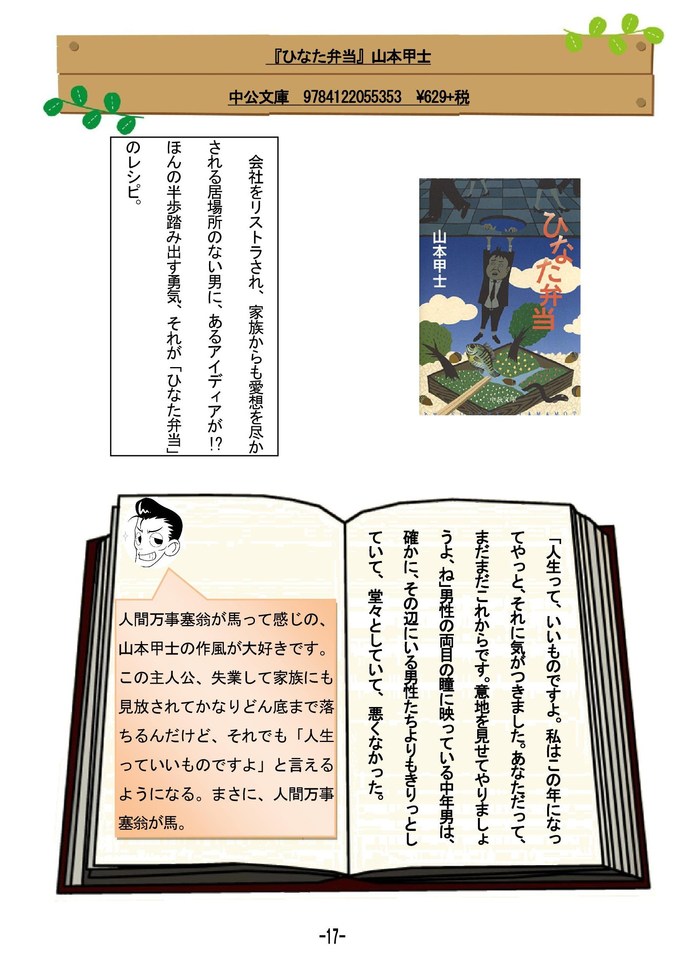 『ひなた弁当』山本甲士
中公文庫　9784122055353　¥629+税
会社をリストラされ、家族からも愛想を尽か
される居場所のない男に、あるアイディアが!?
ほんの半歩踏み出す勇気、それが「ひなた弁当」
のレシピ。
ひなた弁当
山本甲士
中公文庫
「人生って、いいものですよ。私はこの年になっ
てやっと、それに気がつきました。あなただって、
まだまだこれからです。意地を見せてやりましょ
うよ、ね」男性の両目の瞳に映っている中年男は、
確かに、その辺にいる男性たちよりもきりっとし
ていて、堂々としていて、悪くなかった。
人間万事塞翁が馬って感じの、
山本甲士の作風が大好きです。
この主人公、失業して家族にも
見放されてかなりどん底まで落
ちるんだけど、それでも「人生
っていいものですよ」と言える
ようになる。まさに、人間万事
塞翁が馬。
-17-